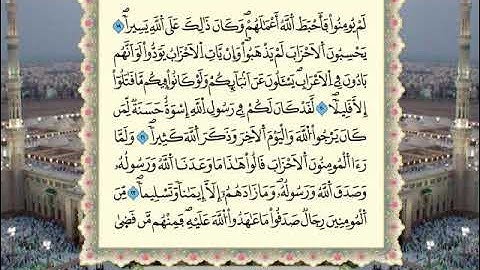 لَمْ يُومِنُواْ فَأَحْبَطَ اَللَّهُ أَعْمَٰلَهُمْۖ وَكَانَ ذَٰلِكَ عَلَى اَللَّهِ يَسِيراًۖ ١٩
يَحْسِبُونَ اَلَاحْزَابَ لَمْ يَذْهَبُواْۖ وَإِنْ يَّاتِ اِلَاحْزَابُ يَوَدُّواْ لَوَ اَنَّهُم
بَادُونَ فِے اِلَاعْرَابِ يَسْـَٔلُونَ عَنَ اَنۢبَآئِكُمْۖ وَلَوْ كَانُواْ فِيكُم مَّا قَٰتَلُواْ
إِلَّا قَلِيلاًۖ ٢٠ لَّقَدْ كَانَ لَكُمْ فِے رَسُولِ اِللَّهِ إِسْوَةٌ حَسَنَةٌ لِّمَن
كَانَ يَرْجُواْ اُللَّهَ وَالْيَوْمَ اَلَاخِرَ وَذَكَرَ اَللَّهَ كَثِيراًۖ ٢١ وَلَمَّا
رَءَا اَلْمُومِنُونَ اَلَاحْزَابَ قَالُواْ هَٰذَا مَا وَعَدَنَا اَللَّهُ وَرَسُولُهُۥ
وَصَدَقَ اَللَّهُ وَرَسُولُهُۥۖ وَمَا زَادَهُمُۥٓ إِلَّآ إِيمَٰناً وَتَسْلِيماًۖ ٢٢ مِّنَ
اَلْمُومِنِينَ رِجَالٌ صَدَقُواْ مَا عَٰهَدُواْ اُللَّهَ عَلَيْهِۖ فَمِنْهُم مَّن قَضَىٰ